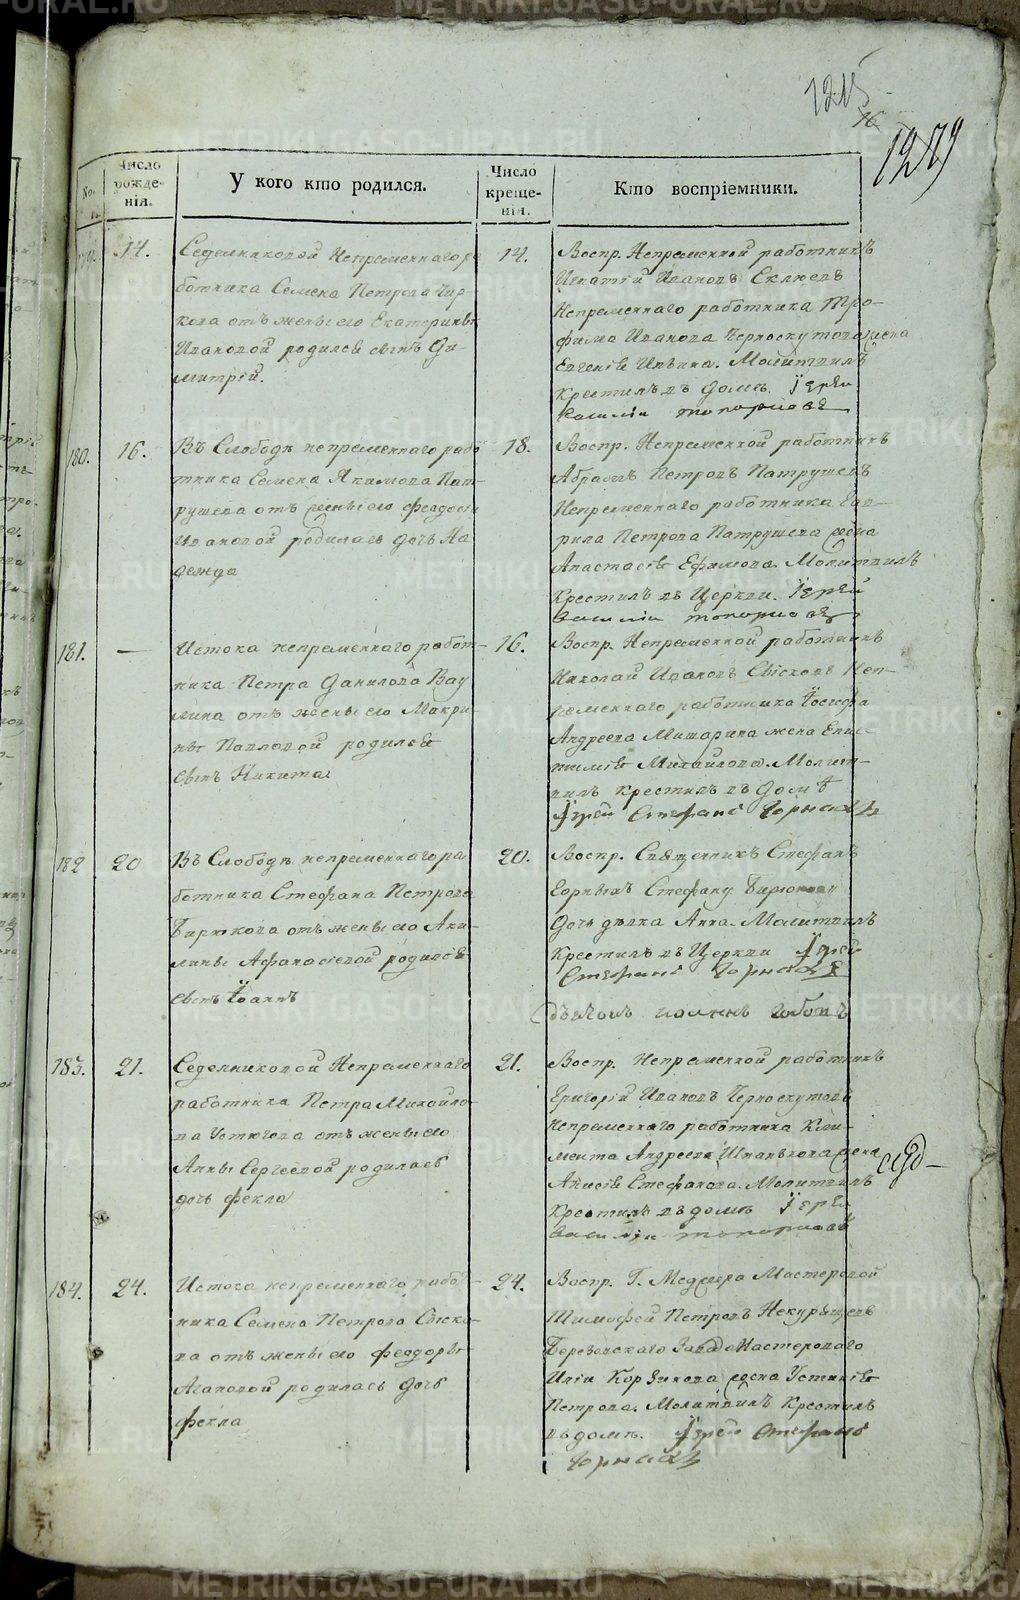 1215
16
1279
No.
Число рожде-нія.
У кого кто родился.
Число креще-нія.
Кто воспріемники.
14.
Седелниковой Непременнаго ра
ботника Семена Петрова Чир-
кова отъ жены его Екатерины
Ивановой родился сынъ Ди-
митрій.
14.
Воспр. Непременной работникъ
Игнатій Ивановъ
Непременнаго работника Тро-
фима Иванова Черноскутова жена
Евгеніѣ Ильина. Молитвилъ
Крестилъ въ Доме. Іерей
Василіи Топорковъ
180.
16.
Въ Слободѣ непременнаго рабо
тника Семена Якимова Пат-
рушева отъ жены его Феодосіи
Ивановой родилась дочь На
дежда
18.
Воспр. Непременной работникъ
Абрамъ Петровъ Патрушевъ
Непременнаго работника Гав-
рила Петрова Патрушева жена
Анастасіѣ Ефимова. Молитвилъ
Крестилъ въ Церкви. Іерей
Василіи Топорковъ
181.
—
Истока непременнаго работ-
ника Петра Данилова Вау
лина отъ жены его Макри-
ны Павловой родился
сынъ Никита
16.
Воспр. Непременной работникъ
Николай Ивановъ Неп-
ременнаго работника Іосифа
Андреева Мишарина жена Епис-
тиміѣ Михайлова. Молит-
вилъ Крестилъ въ Домѣ
Іерей Стефанъ Горныхъ
182
20
Въ Слободѣ непременнаго ра
ботника Стефана Петрова
Бирюкова отъ жены его Аки-
лины Афанасіевой родился
сынъ Іоаннъ
20.
Воспр. Священникъ Стефанъ
Горныхъ Стефана Бирюкова
Дочь дѣвка Анна. Молитвилъ
Крестилъ въ Церкви Іерей
Стефанъ Горныхъ
183.
21.
Седелниковой Непременнаго
работника Петра Михайло-
ва Устюгова отъ жены его
Анны Сергеевой родилась
дочь Фекла
21.
Воспр. Непременной работникъ
Григорій Ивановъ Черноскутовъ
Непременнаго работника Кли-
мента Андреева жена
Анисіѣ Стефанова. Молитвилъ
Крестилъ въ домѣ Іерей
Василіи Топорковъ
184.
24.
Истока непременнаго работ-
ника Семена Петрова
отъ жены его Феодоры
Агаповой родилась дочь
Фекла
24.
Воспр. Г. Меджера Мастеровой
Тимофей Петровъ
Березовскаго Завода Мастероваго
Ильи Корзикова жена Устиніѣ
Петрова. Молитвилъ Крестилъ
въ домѣ. Іерей Стефанъ
Горныхъ
METRIKI.GASO-URAL.RU